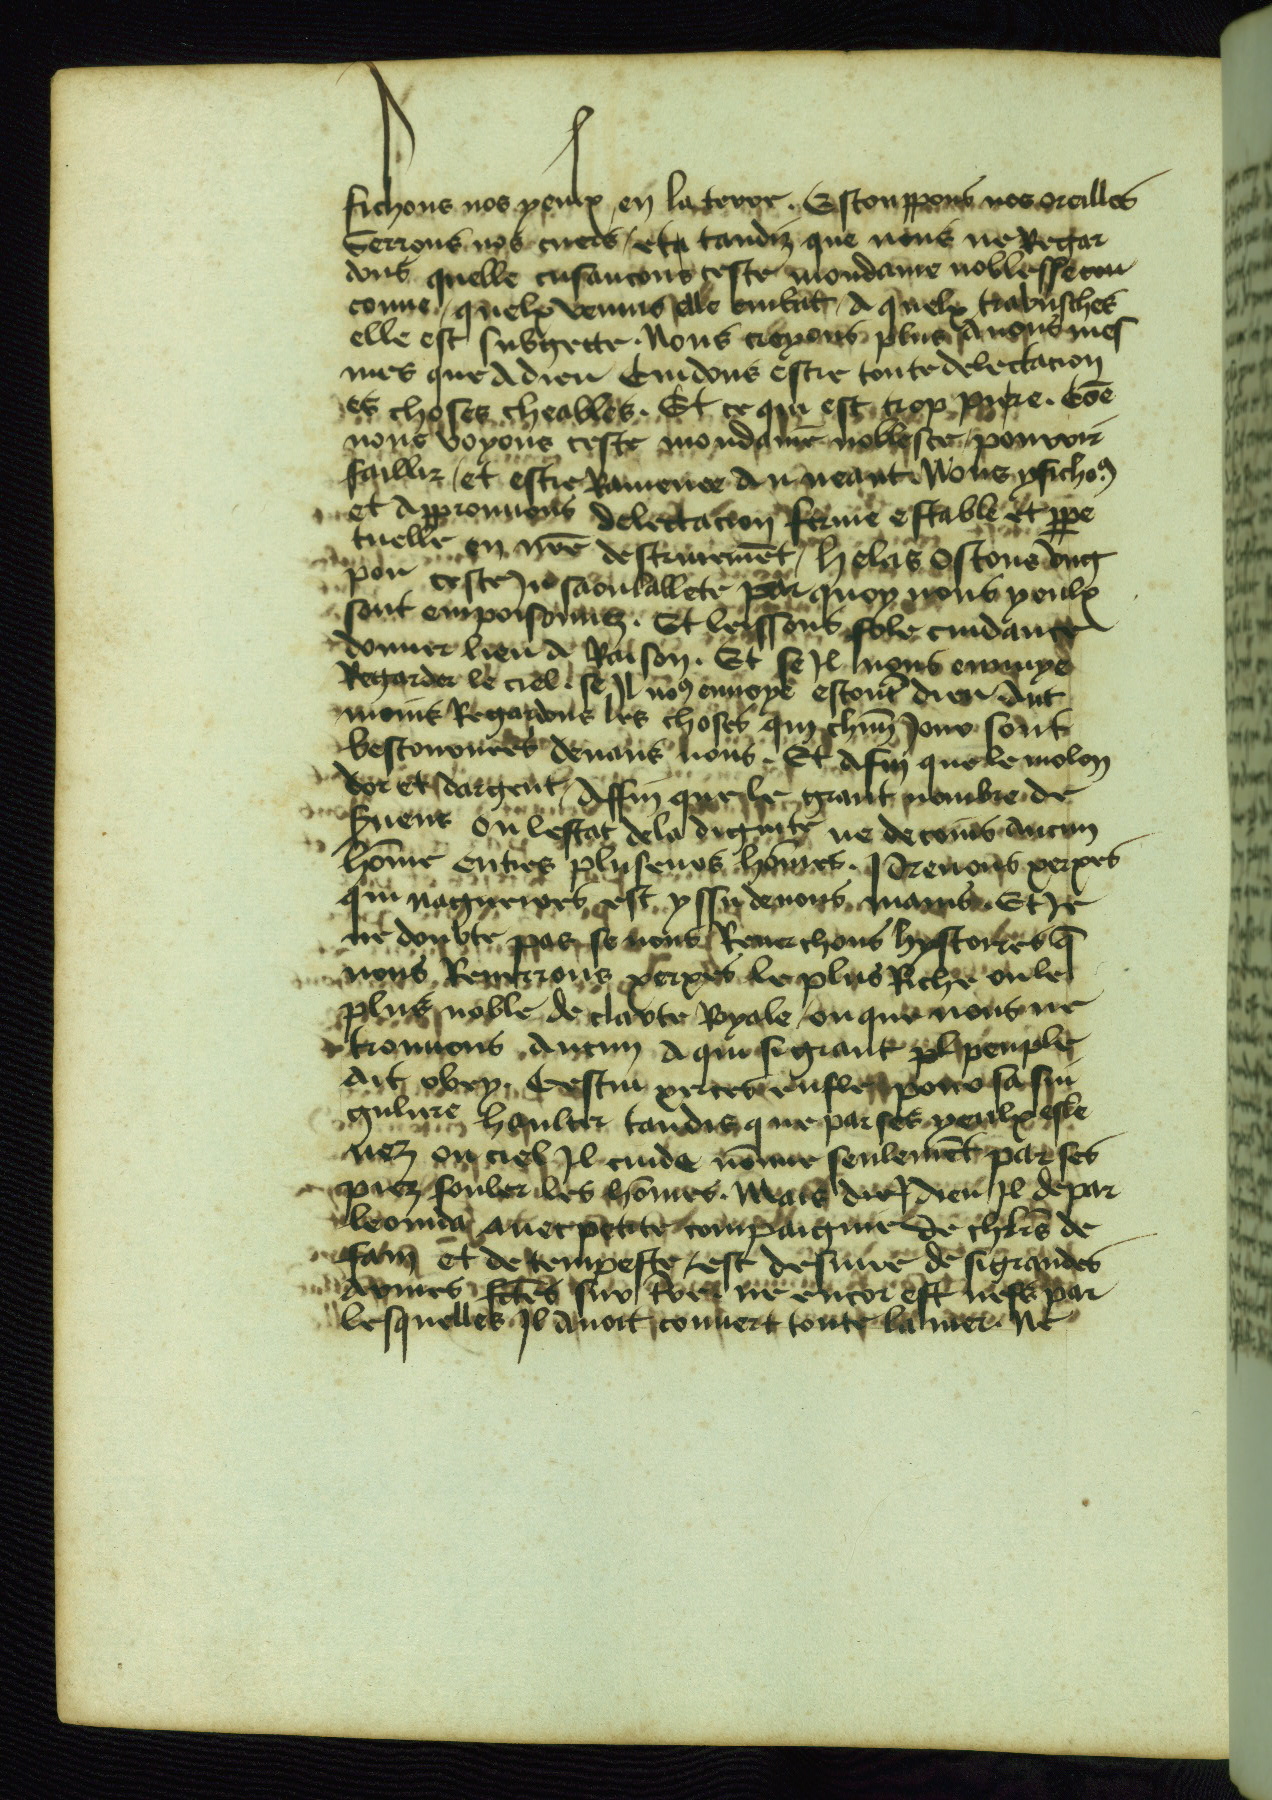 fichons nos yeulx en la terre. Estouppons nos oreilles
Serrons nos cuers / et tandiz que nous ne Regar
dons quelle cusancons ceste mondaine noblesse con
conue / quelx venins elle embat / A quelx trabusches
elle est subgette. Nous croyons plus A nous mes
mes que A dieu Cuidons estre toute delectacion
es choses cheables. Et ce qui est trop pire. Cōe
nous voyons ceste mondaine noblesce pouvoir
faillir / et estre Ramenee A neant. Nous y fichoꝰ
et Approuuons delectacion ferme estable et ꝑpe
tuelle en nr̄e destruiemēt / helas Ostons ung
pou ceste In saoulablete par quoy nous yeulx
sont empoisonnez. Et leissons fole cuidance
donner lieu A Raison. Et se Il nous ennuye
Regarder le ciel. se Il noꝰ ennoye escout dieu. Aut
moins Regardons les choses qui chun̄ Jour sont
bestournees deuant nous. Et A fin que le molon
dor et dargent / Affin que le grant nombre de
ou lestat dela dignite ne decoius aucun
hōme entres pluseurs hōmes. Prenons xerxes
qui nagueires est yssu de nous mains. Et Je
ne doubte pas se nous Reuerchons hystoires q̄
nous Reuerrons xerxes le plus Riche ou le
plus noble de clarte Royale / ou que nous ne
trouuons Aucun A qui si grant pl peuple
Ait obey. Cestui xerces enfle pour sa sin
guliere haulter tandis que par ses yeulx esle
uez ou ciel Il cuide nōmie seulemēt par ses
piez fouler les hōmes. Mais dieu Il de par
leonida auec petite compaignie de chl̄rs de
fain et de tempeste / est desnue de si grandes
armes fctēs sur t̄re. ne encor est nefs par
lesquelles Il Auoit couuert toute la mer. Ne